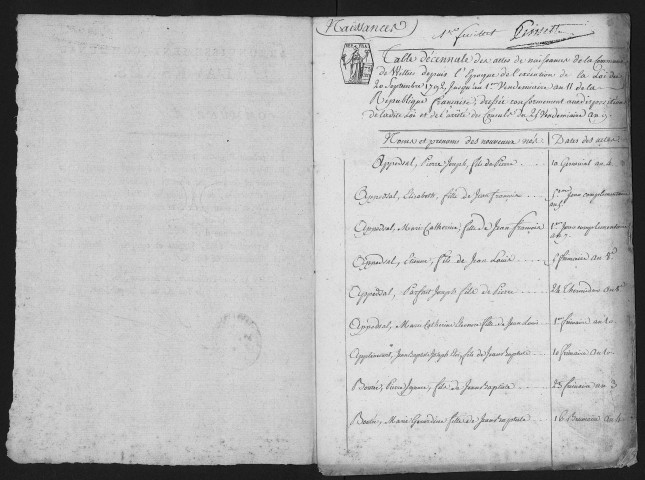 (Naissances)
1er feuillet
Table décennale des actes de naissances de la Commune
de Willies depuis l'Epoque de l'exécution de la Loi du
20 Septembre 1792, Jusqu'au 1er Vendemiaire an 11 de la
République française, dressée conformément aux dispositions
de ladite Loi et de l'arrêté des Consuls du 25 Vendemiaire an 9.
Noms et prénoms des nouveaux nés. Dates des actes
Appedsal, Pierre Joseph, fils de Pierre 10 Germinal an 4
Appedsal, Elisabeth, fille de Jean François 5eme Jour complémentaire
an 5
Appedsal, Marie Catherine, fille de Jean François 1er Jour complémentaire
an 7
Appedsal, Etienne, fils de Jean Louis frimaire an 8
Appedsal, Parfait Joseph fils de Pierre 24 thermidor an 8
Appedsal, Marie Catherine fille de Jean Louis 1er frimaire an 10
Jean Baptiste Joseph, fils de Jean Baptiste 10 frimaire an 10
Pierre, fils de Jean Baptiste 28 frimaire an 3
Marie Géraldine fille de Jean Baptiste 16 Brumaire an 4